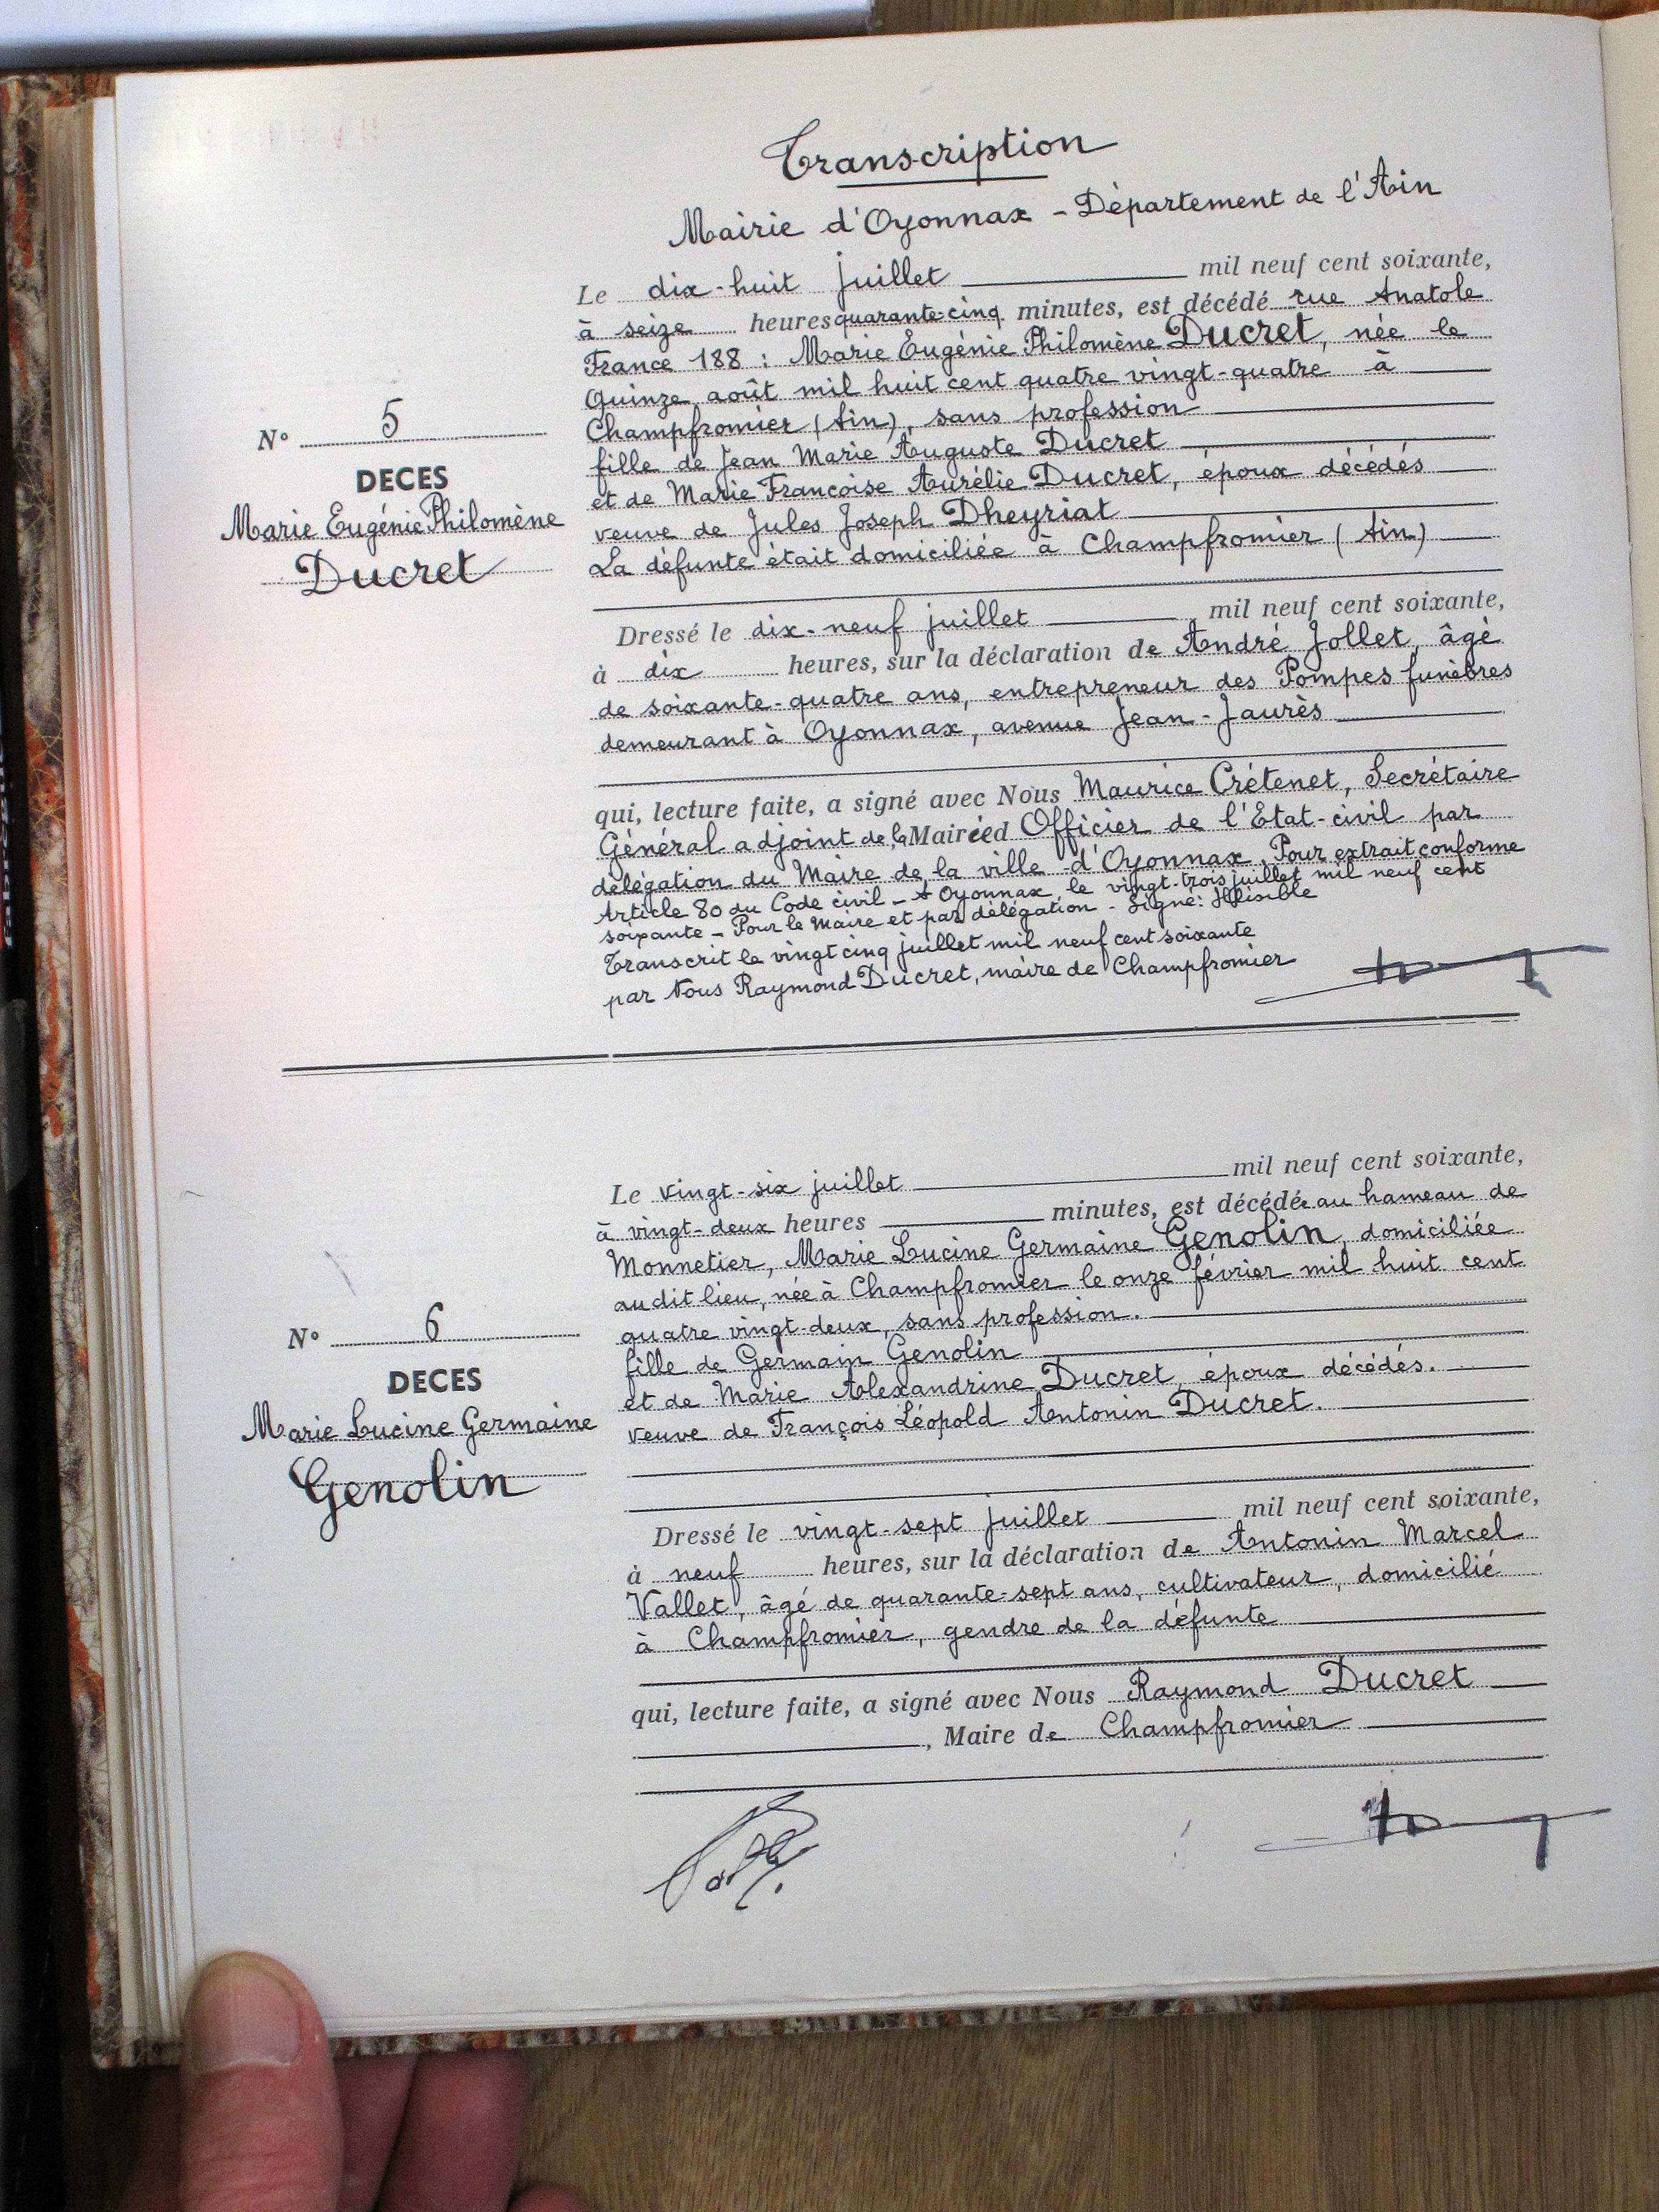 Transcription
Mairie d'Oyonnax - Département de l'Ain
Le dix-huit juillet mil neuf cent soixante,
à seize heures quarante-cinq minutes, est décédé rue Anatole
France 188 : Marie Eugénie Philomène Ducret, née le
quinze août mil huit cent quatre vingt-quatre à
Champfromier (Ain), sans profession
fille de Jean Marie Auguste Ducret
et de Marie Françoise Aurélie Ducret, époux décédés
veuve de Jules Joseph Dheyriat
La défunte était domiciliée à Champfromier (Ain)
N° 5
DECES
Marie Eugénie Philomène
Ducret
Dressé le dix-neuf juillet mil neuf cent soixante,
à dix heures, sur la déclaration de André Jollet, âgé
de soixante-quatre ans, entrepreneur des Pompes funèbres
demeurant à Oyonnax, avenue Jean-Jaurès
qui, lecture faite, a signé avec Nous Maurice Crétenet, Secrétaire
Général adjoint de la Mairie Officier de l'Etat-civil par
délégation du Maire de la ville d'Oyonnax. Pour extrait conforme
Article 80 du Code civil - A Oyonnax, le vingt-trois juillet mil neuf cent
soixante - Pour le Maire et par délégation - Signé: Illisible
Transcrit le vingt cinq juillet mil neuf cent soixante
par Nous Raymond Ducret, maire de Champfromier
Le vingt-six juillet mil neuf cent soixante,
à vingt-deux heures minutes, est décédée au hameau de
Monnetier, Marie Lucine Germaine Genolin, domiciliée
audit lieu, née à Champfromier le onze février mil huit cent
quatre vingt-deux, sans profession.
fille de Germain Genolin
et de Marie Alexandrine Ducret, époux décédés.
veuve de François Léopold Antonin Ducret.
N° 6
DECES
Marie Lucine Germaine
Genolin
Dressé le vingt-sept juillet mil neuf cent soixante,
à neuf heures, sur la déclaration de Antonin Marcel
Vallet, âgé de quarante-sept ans, cultivateur, domicilié
à Champfromier, gendre de la défunte
qui, lecture faite, a signé avec Nous Raymond Ducret
, Maire de Champfromier